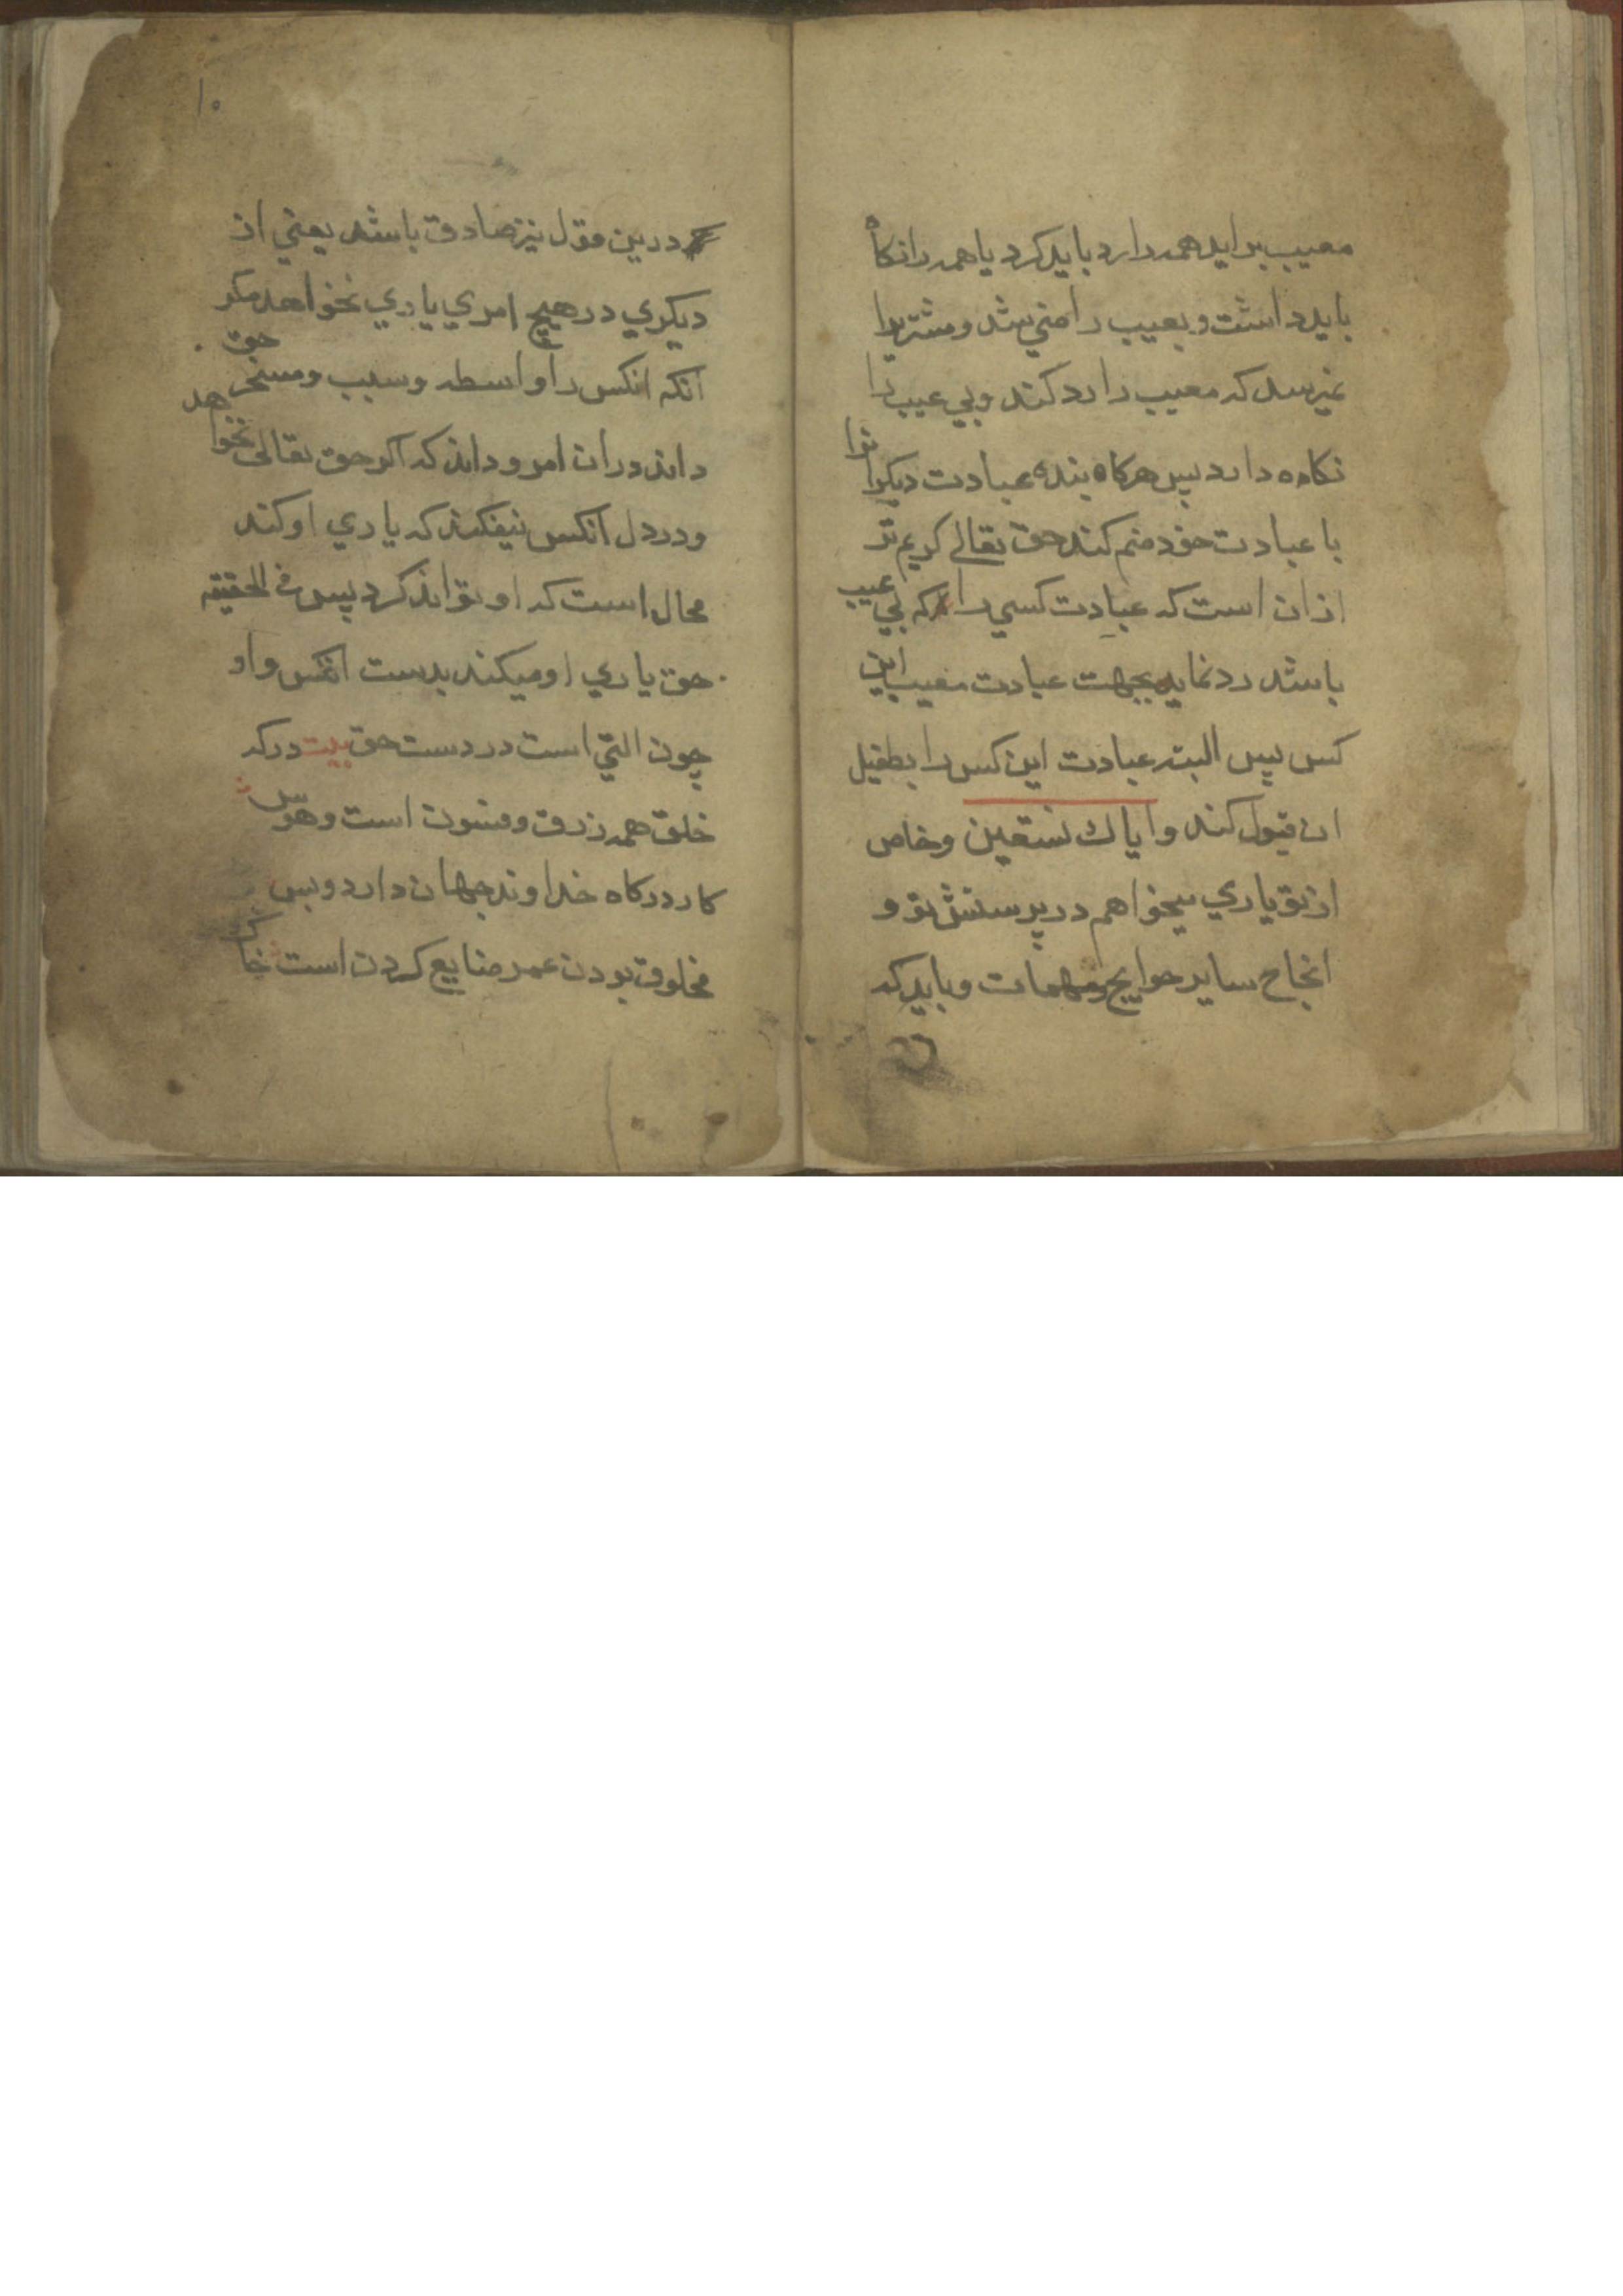 معیب براید همه را رد باید کرد یا همه را نکاه
باید داشت و بعیب راضی شد و مشتریرا
نمیرسد که معیب را رد کند و بی عیب را
نکاه دارد پس هرکاه بنده عبادت دیکرانرا
با عبادت خود ضم کند حق تعالی کریم تر
از ان است که عبادت کسی را که بی عیب
باشد رد نماید بجهت عبادت معیب این
کس پس البته عبادت این کس را بطفیل
ان قبول کند وایاك نستعین و خاص
از تو یاری میخواهم در پرستش تو و
انجاح سایر حوایج و مهمات و باید که
۱۰
درین قول نیز صادق باشد یعنی از
دیکری در هیچ امری یاری نخواهد مکر
انکه انکس را واسطه و سبب و مسخر حق
داند در ان امر و داند که اکر حق تعالی نخواهد
و در دل انکس نیفکند که یاری او کند
محال است که او تواند کرد پس فی الحقیقه
حق یاری او میکند بدست انکس و او
چون التی است در دست حق بیت در که
خلق همه زرق و فسون است و هوس
کار درکاه خداوند جهان دارد و بس
مخلوق بودن عمر ضایع کردن است خاك